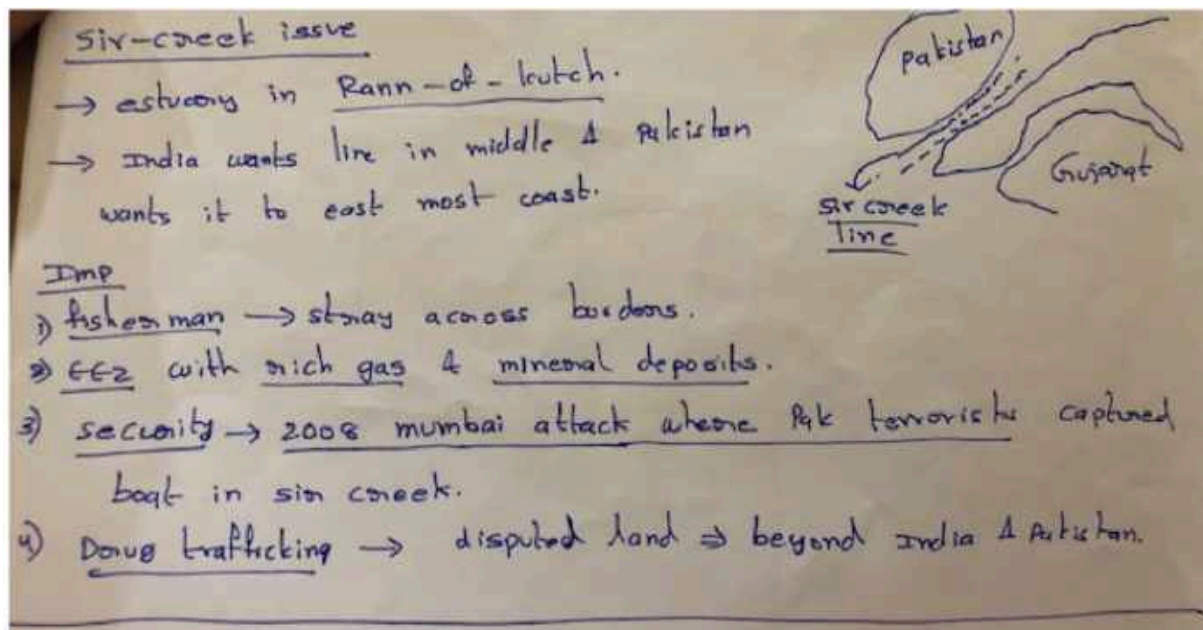 Sir-creek issue
→ estuary in Rann-of-kutch.
→ India wants line in middle & Pakistan
wants it to east most coast.
Pakistan
Gujarat
Sir creek
line
Imp
1) fisherman → stray across borders.
2) EEZ with rich gas & mineral deposits.
3) security → 2008 mumbai attack where Pak terrorists captured
boat in sir creek.
4) Drug trafficking → disputed land ⇒ beyond India & Pakistan.